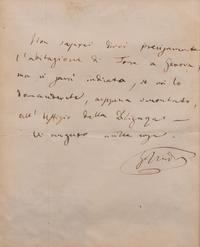 Non saprei dirvi precisamente
l'abitazione di
a Genova;
ma vi sarà indicata, se ne lo
domanderete, appena smontato,
all' Uffizio della Diligenza —
Vi auguro mille cose
G Verdi